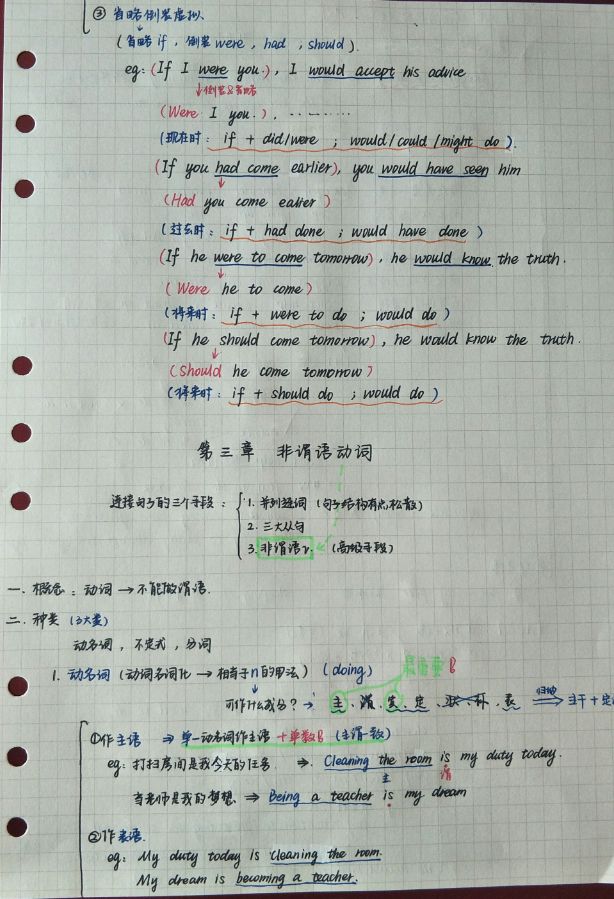 ③ 省略倒装虚拟.
(省略 if, 倒装 were, had, should).
eg: (If I were you.), I would accept his advice
↓倒装&省略
(Were I you.), ………
(现在时: if + did/were ; would/could/might do).
(If you had come earlier), you would have seen him
(Had you come ealier)
(过去时: if + had done ; would have done)
(If he were to come tomorrow), he would know the truth.
(Were he to come)
(将来时: if + were to do ; would do)
(If he should come tomorrow), he would know the truth.
(Should he come tomorrow)
(将来时: if + should do ; would do)
第三章 非谓语动词
连接句子的三个手段:
1. 并列连词 (句子结构有点松散)
2. 三大从句
3. 非谓语v. (高级手段)
一. 概念: 动词→不能做谓语.
二. 种类 (3大类)
动名词, 不定式, 分词
1. 动名词 (动词名词化 → 相当于n的用法) (doing) 最重要
可作什么成分? → 主、谓、宾、定、状、补、表 归纳⇒ 主干+定
①作主语 ⇒ 单一动名词作主语 + 单数 (主谓一致)
eg: 打扫房间是我今天的任务 ⇒. Cleaning the room is my duty today.
主 谓
当老师是我的梦想 ⇒ Being a teacher is my dream
②作表语.
eg: My duty today is cleaning the room.
My dream is becoming a teacher.